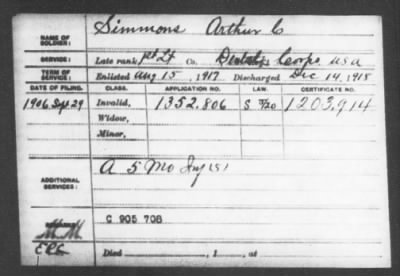 NAME OF SOLDIER: Simmons Arthur C
SERVICE: Late rank, 1st Lt Co. Dental Corps. USA
TERM OF SERVICE: Enlisted Aug 15, 1917 Discharged Dec 14, 1918
DATE OF FILING. CLASS. APPLICATION NO. LAW. CERTIFICATE NO.
Sept 29 Invalid, 1352,806 S 1203,914
Widow,
Minor,
ADDITIONAL SERVICES: A 5 Mo Inf
C 905 708
Died , 1 , at